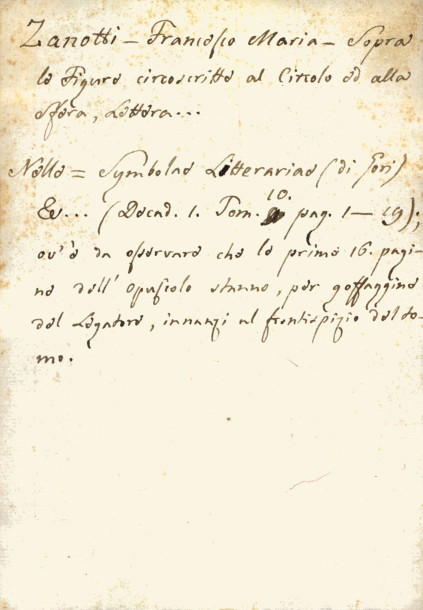 Zanotti — Francesco Maria — Sopra
le Figure circoscritte al Circolo ed alla
sfera, Lettera...
Nelle = Symbolae Litterariae (di Gori)
&c... (Decad. 1. Tom. 10. pag. 1 — 19);
ov'è da osservare che le prime 16. pagi-
ne dell' Opuscolo stanno, per goffaggine
del Legatore, innanzi al frontispizio del to-
mo.